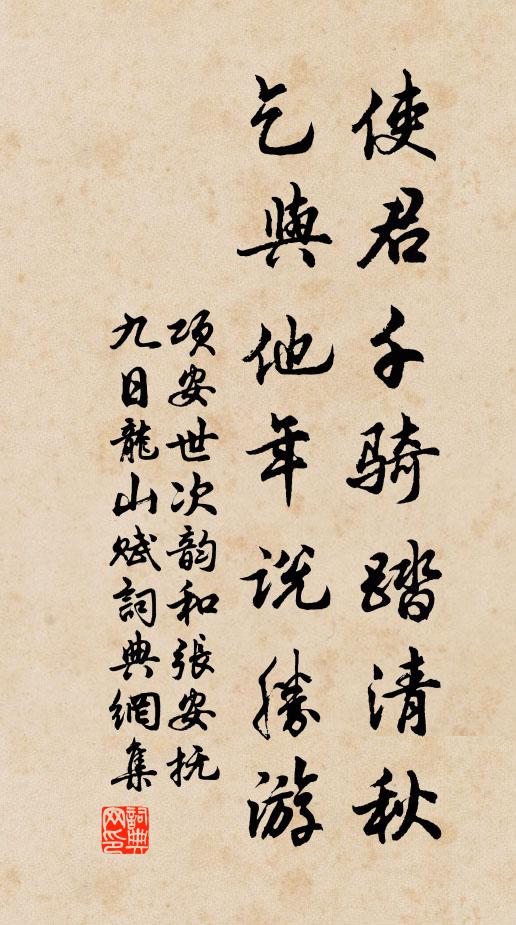 使君千骑踏清秋
乞與他年说勝游
项安世次韵和張安抚
九日龍山赋詞典網集
詞典网印